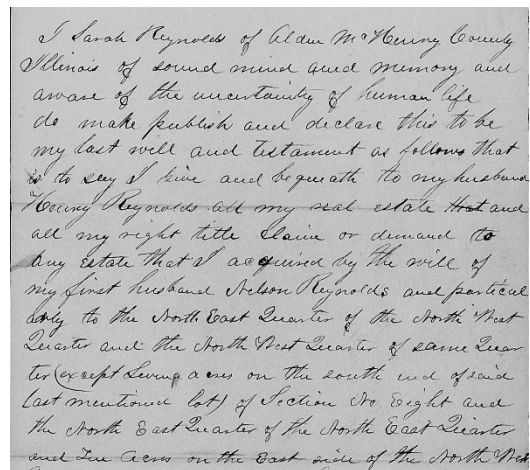 I Sarah Reynolds of Alden McHenry County
Illinois of sound mind and memory and
aware of the uncertainity of human life
do make publish and declare this to be
my last will and testament as follows that
is to say I Give and bequeath to my husband
Henry Reynolds all my real estate and
all my right title Claim or demand to
any Estate that I acquired by the will of
my first husband Nelson Reynolds and partical
arly to the North East Quarter of the North West
Quarter and the North West Quarter of same Quar
ter (except Seven acres on the south end of said
last mentioned lot) of Section No Eight and
the North East Quarter of the North East Quarter
and acres on the East side of the North West